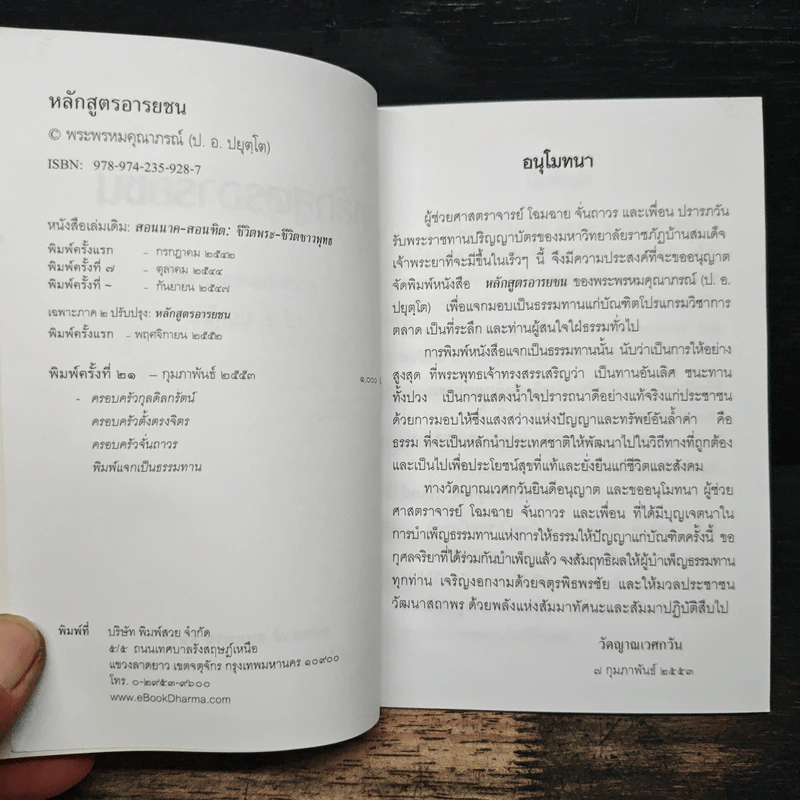 หลักสูตรอารยชน
© พระพรหมคุณาภรณ์ (ป. อ. ปยุตฺโต)
ISBN: 978-974-235-928-7
หนังสือเล่มเดิม: สอนนาค-สอนฑิต: ชีวิตพระ-ชีวิตชาวพุทธ
พิมพ์ครั้งแรก - กรกฎาคม ๒๕๔๒
พิมพ์ครั้งที่ ๗ - ตุลาคม ๒๕๔๔
พิมพ์ครั้งที่ ~ - กันยายน ๒๕๔๗
เฉพาะภาค ๒ ปรับปรุง: หลักสูตรอารยชน
พิมพ์ครั้งแรก - พฤศจิกายน ๒๕๕๒
พิมพ์ครั้งที่ ๒๑ - กุมภาพันธ์ ๒๕๕๓ ๑,๐๐๐
- ครอบครัวกุลดิลกรัตน์
ครอบครัวตั้งตรงจิตร
ครอบครัวจั่นถาวร
พิมพ์แจกเป็นธรรมทาน
พิมพ์ที่ บริษัท พิมพ์สวย จำกัด
๕/๕ ถนนเทศบาลรังสฤษฏ์เหนือ
แขวงลาดยาว เขตจตุจักร กรุงเทพมหานคร ๑๐๙๐๐
โทร. ๐-๒๙๕๓-๙๖๐๐
www.eBookDharma.com
อนุโมทนา
ผู้ช่วยศาสตราจารย์ โฉมฉาย จั่นถาวร และเพื่อน ปรารภวัน
รับพระราชทานปริญญาบัตรของมหาวิทยาลัยราชภัฏบ้านสมเด็จ
เจ้าพระยาที่จะมีขึ้นในเร็วๆ นี้ จึงมีความประสงค์ที่จะขออนุญาต
จัดพิมพ์หนังสือ หลักสูตรอารยชน ของพระพรหมคุณาภรณ์ (ป. อ.
ปยุตฺโต) เพื่อแจกมอบเป็นธรรมทานแก่บัณฑิตโปรแกรมวิชาการ
ตลาด เป็นที่ระลึก และท่านผู้สนใจใฝ่ธรรมทั่วไป
การพิมพ์หนังสือแจกเป็นธรรมทานนั้น นับว่าเป็นการให้อย่าง
สูงสุด ที่พระพุทธเจ้าทรงสรรเสริญว่า เป็นทานอันเลิศ ชนะทาน
ทั้งปวง เป็นการแสดงน้ำใจปรารถนาดีอย่างแท้จริงแก่ประชาชน
ด้วยการมอบให้ซึ่งแสงสว่างแห่งปัญญาและทรัพย์อันล้ำค่า คือ
ธรรม ที่จะเป็นหลักนำประเทศชาติให้พัฒนาไปในวิถีทางที่ถูกต้อง
และเป็นไปเพื่อประโยชน์สุขที่แท้และยั่งยืนแก่ชีวิตและสังคม
ทางวัดญาณเวศกวันยินดีอนุญาต และขออนุโมทนา ผู้ช่วย
ศาสตราจารย์ โฉมฉาย จั่นถาวร และเพื่อน ที่ได้มีบุญเจตนาใน
การบำเพ็ญธรรมทานแห่งการให้ธรรมให้ปัญญาแก่บัณฑิตครั้งนี้ ขอ
กุศลจริยาที่ได้ร่วมกันบำเพ็ญแล้ว จงสัมฤทธิผลให้ผู้บำเพ็ญธรรมทาน
ทุกท่าน เจริญงอกงามด้วยจตุรพิธพรชัย และให้มวลประชาชน
วัฒนาสถาพร ด้วยพลังแห่งสัมมาทัศนะและสัมมาปฏิบัติสืบไป
วัดญาณเวศกวัน
๗ กุมภาพันธ์ ๒๕๕๓